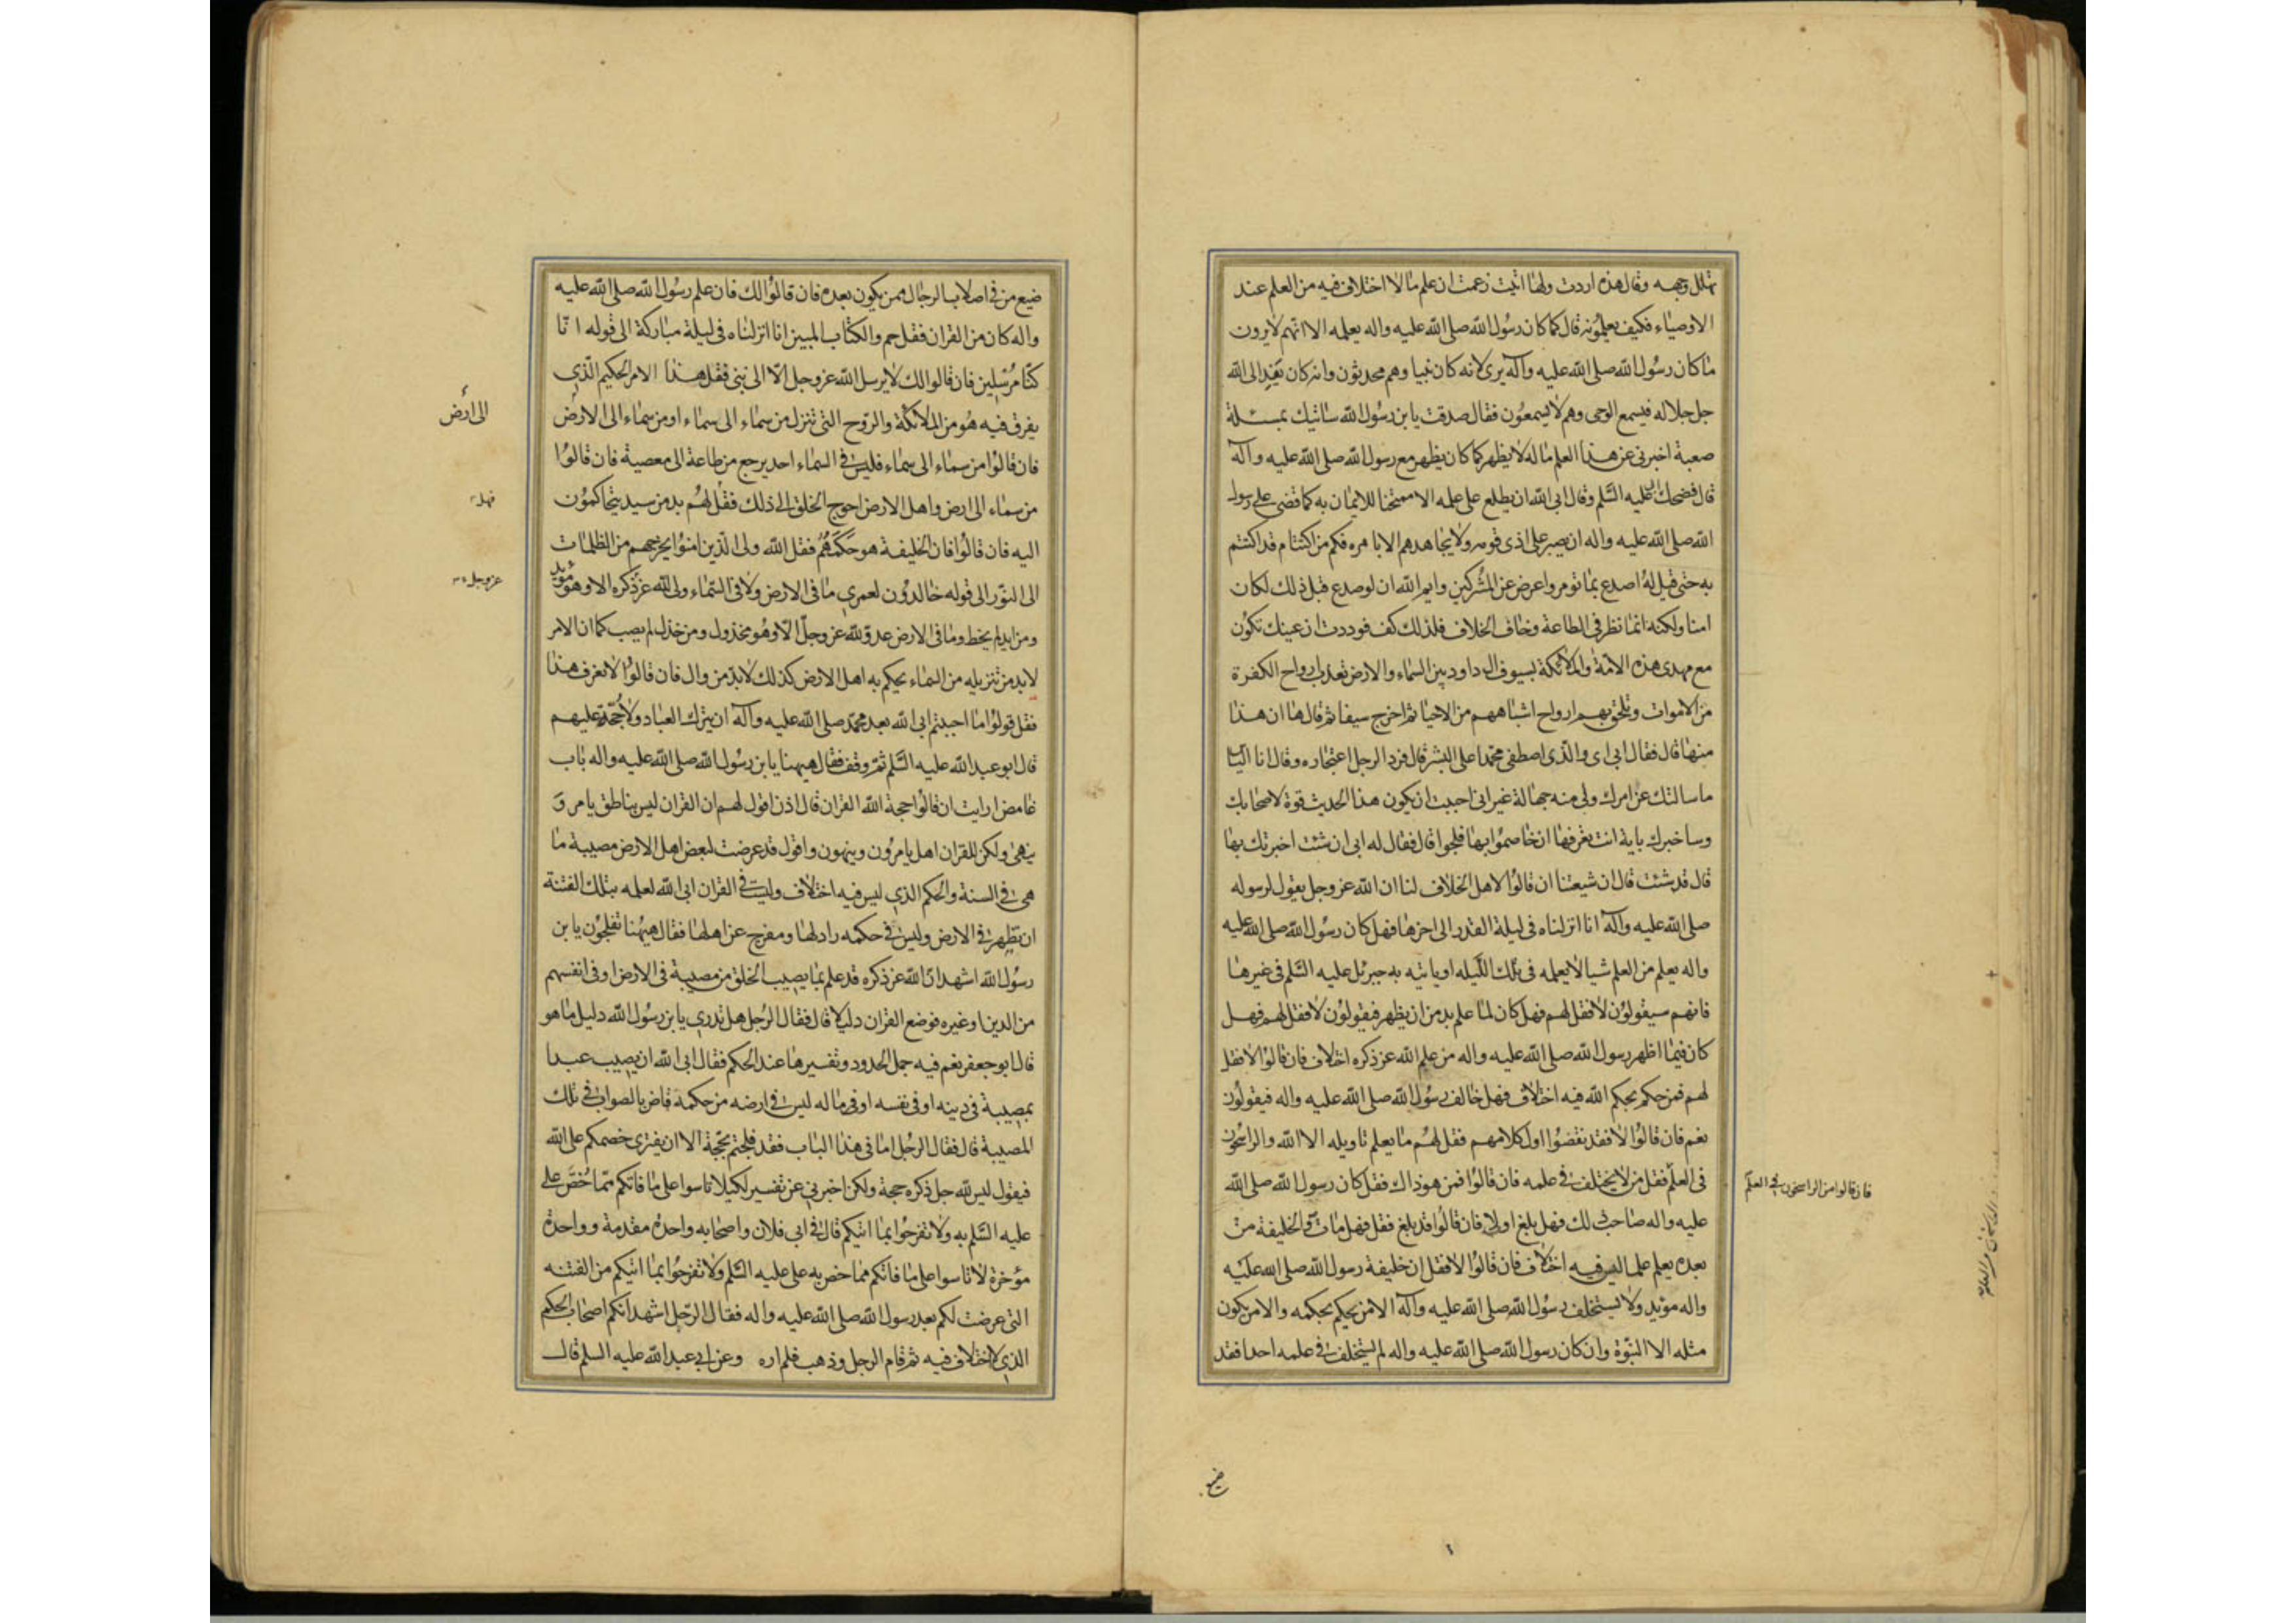 تهلل وجهه وقال هذه اردت ولها اتيت زعمت ان علم ما لا اختلاف فيه من العلم عند
الاوصياء فكيف يعلمونه قال كما كان رسول الله صلى الله عليه واله يعلمه الا انهم لا يرون
ما كان رسول الله صلى الله عليه وآله يرى لانه كان نبيا وهم محدثون وانه كان يفد الى الله
جل جلاله فيسمع الوحى وهم لا يسمعون فقال صدقت يا بن رسول الله ساتيك بمسئلة
صعبة اخبرنى عن هذا العلم ماله لا يظهر كما كان يظهر مع رسول الله صلى الله عليه وآله
قال فضحك ابى عليه السلم وقال ابى الله ان يطلع على علمه الا ممتحنا للايمان به كما قضى على رسول
الله صلى الله عليه واله ان يصبر على اذى قومه ولا يجاهدهم الا بامره فكم من اكتتام قد اكتتم
به حتى قيل له اصدع بما تومر واعرض عن المشركين وايم الله ان لو صدع قبل ذلك لكان
امنا ولكنه انما نظر فى الطاعة وخاف الخلاف فلذلك كف فوددت ان عينك تكون
مع مهدى هذه الامة والملائكة بسيوف ال داود بين السماء والارض تعذب ارواح الكفرة
من الاموات وتلحق بهم ارواح اشباههم من الاحيا ثم اخرج سيفا ثم قال ها ان هذا
منها قال فقال ابى اى والذى اصطفى محمدا على البشر قال فرد الرجل اعتجاره وقال انا الياس
ما سالتك عن امرك ولى منه جهالة غير انى احببت ان يكون هذا الحديث قوة لاصحابك
وساخبرك باية انت تعرفها ان خاصموا بها فلجوا قال فقال له ابى ان شئت اخبرتك بها
قال قد شئت قال ان شيعتنا ان قالوا لاهل الخلاف لنا ان الله عز وجل يقول لرسوله
صلى الله عليه وآله انا انزلناه فى ليلة القدر الى اخرها فهل كان رسول الله صلى الله عليه
واله يعلم من العلم شيا لا يعلمه فى تلك الليله او ياتيه به جبرئل عليه السلم فى غيرها
فانهم سيقولون لا فقل لهم فهل كان لما علم بد من ان يظهر فيقولون لا فقل لهم فهل
كان فيما اظهر رسول الله صلى الله عليه واله من علم الله عز ذكره اختلاف فان قالوا لا فقل
لهم فمن حكم بحكم الله فيه اختلاف فهل خالف رسول الله صلى الله عليه واله فيقولون
نعم فان قالوا لا فقد نقضوا اول كلامهم فقل لهم ما يعلم تاويله الا الله والراسخون
فى العلم فقل من لا يختلف فى علمه فان قالوا فمن هو ذاك فقل كان رسول الله صلى الله
فان قالوا من الراسخون فى العلم
عليه واله صاحب ذلك فهل بلغ او لا فان قالوا قد بلغ فقل فهل مات والخليفة من
بعده يعلم علما ليس فيه اختلاف فان قالوا لا فقل ان خليفة رسول الله صلى الله عليه
واله مؤيد ولا يستخلف رسول الله صلى الله عليه وآله الا من يحكم بحكمه والا من يكون
مثله الا النبوة وان كان رسول الله صلى الله عليه واله لم يستخلف فى علمه احدا فقد
ضيع
ضيع من فى اصلاب الرجال ممن يكون بعده فان قالوا لك فان علم رسول الله صلى الله عليه
واله كان من القران فقل حم والكتاب المبين انا انزلناه فى ليلة مباركة الى قوله انا
كنا مرسلين فان قالوا لك لا يرسل الله عز وجل الا الى نبى فقل هذا الامر الحكيم الذى
يفرق فيه هو من الملائكة والروح التى تنزل من سماء الى سماء او من سماء الى الارض
الى ارض
فان قالوا من سماء الى سماء فليس فى السماء احد يرجع من طاعة الى معصية فان قالوا
من سماء الى ارض واهل الارض احوج الخلق الى ذلك فقل لهم بد من سيد يتحاكمون
فهل
اليه فان قالوا فان الخليفة هو حكمهم فقل الله ولى الذين امنوا يخرجهم من الظلمات
الى النور الى قوله خالدون لعمرى ما فى الارض ولا فى السماء ولى الله عز ذكره الا وهو مؤيد
عز وجل
ومن ايد لم يخط وما فى الارض عدو لله عز وجل الا وهو مخذول ومن خذل لم يصب كما ان الامر
لا بد من تنزيله من السماء يحكم به اهل الارض كذلك لا بد من وال فان قالوا لا نعرف هذا
فقل قولوا ما احببتم ابى الله بعد محمد صلى الله عليه وآله ان يترك العباد ولا حجة عليهم
قال ابو عبد الله عليه السلم ثم وقف فقال هيهنا يا بن رسول الله صلى الله عليه واله باب
غامض ارايت ان قالوا حجة الله القران قال اذن اقول لهم ان القران ليس بناطق يامر و
ينهى ولكن للقران اهل يامرون وينهون واقول قد عرضت لبعض اهل الارض مصيبة ما
هى فى السنة والحكم الذى ليس فيه اختلاف وليست فى القران ابى الله لعلمه بتلك الفتنة
ان تظهر فى الارض وليس فى حكمه راد لها ومفرج عن اهلها فقال هيهنا تفلجون يا بن
رسول الله اشهد ان الله عز ذكره قد علم بما يصيب الخلق من مصيبة فى الارض او فى انفسهم
من الدين او غيره فوضع القران دليلا قال فقال الرجل هل تدرى يا بن رسول الله دليل ما هو
قال ابو جعفر نعم فيه جمل الحدود وتفسيرها عند الحكم فقال ابى الله ان يصيب عبدا
بمصيبة فى دينه او فى نفسه او فى ماله ليس فى ارضه من حكمه قاض بالصواب فى تلك
المصيبة قال فقال الرجل اما فى هذا الباب فقد فلجتم بحجة الا ان يفترى خصمكم على الله
فيقول ليس لله جل ذكره حجة ولكن اخبرنى عن تفسير لكيلا تاسوا على ما فاتكم مما خص على
عليه السلم به ولا تفرحوا بما اتيكم قال فى ابى فلان واصحابه واحدة مقدمة وواحدة
مؤخرة لا تاسوا على ما فاتكم مما خص به على عليه السلم ولا تفرحوا بما اتيكم من الفتنه
التى عرضت لكم بعد رسول الله صلى الله عليه واله فقال الرجل اشهد انكم اصحاب الحكم
الذى لا اختلاف فيه ثم قام الرجل وذهب فلم اره وعن ابى عبد الله عليه السلم قال